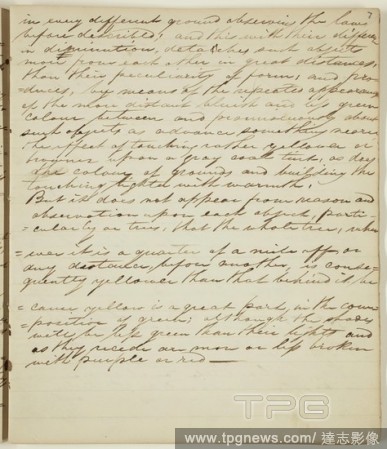 in every different ground observing the laws
before described; and this with their difference
in diminution, detaches such objects
most from each other in great distances,
than their peculiarity of form; and pro
duces, by means of the repeated appearance
of the more distant bluish and its green
colour between and promiscuously about
such objects as advance something nearer
the effect of touching rather yellower or
browner upon a gray coat tint, as does
the colour of grounds and building the
touching lights with warmth.
But it does not appear from reason and
observation upon each object, parti
=cularly on trees, that the whole tree, when
=ever it is a quarter of a mile off, or
any distance, before another, is conse=
quently yellower than that behind it, be
=cause yellow is a great part in the com
=position of green; although the shades
may be less green than their lights and
as they recede are more or less broken
with purple or red
TPG
www.tpgnews.com/達志影像